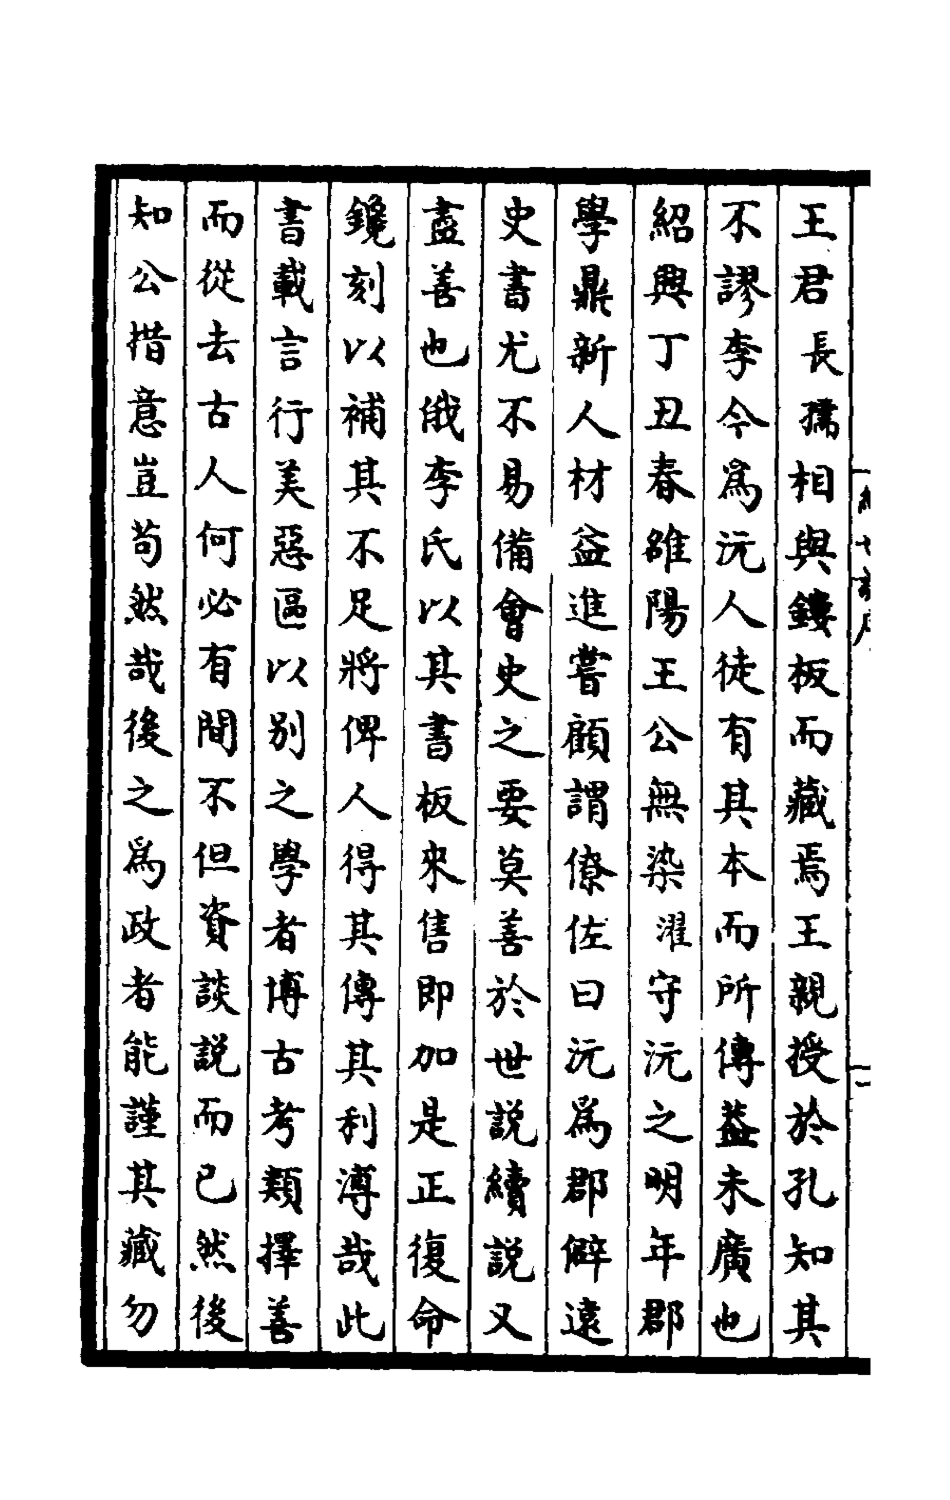 王君長孺相與鏤板而藏焉王親授於孔知其
不謬李今為沅人徒有其本而所傳葢未廣也
紹興丁丑春雎陽王公無染濯守沅之明年郡
學鼎新人材益進嘗顧謂僚佐曰沅為郡僻遠
史書尤不易備會史之要莫善於世說續說又
盡善也俄李氏以其書板來售即加是正復命
鑱刻以補其不足將俾人得其傳其利溥哉此
書載言行美惡區以別之學者博古考類擇善
而從去古人何必有間不但資談説而已然後
知公措意豈苟然哉後之為政者能謹其藏勿